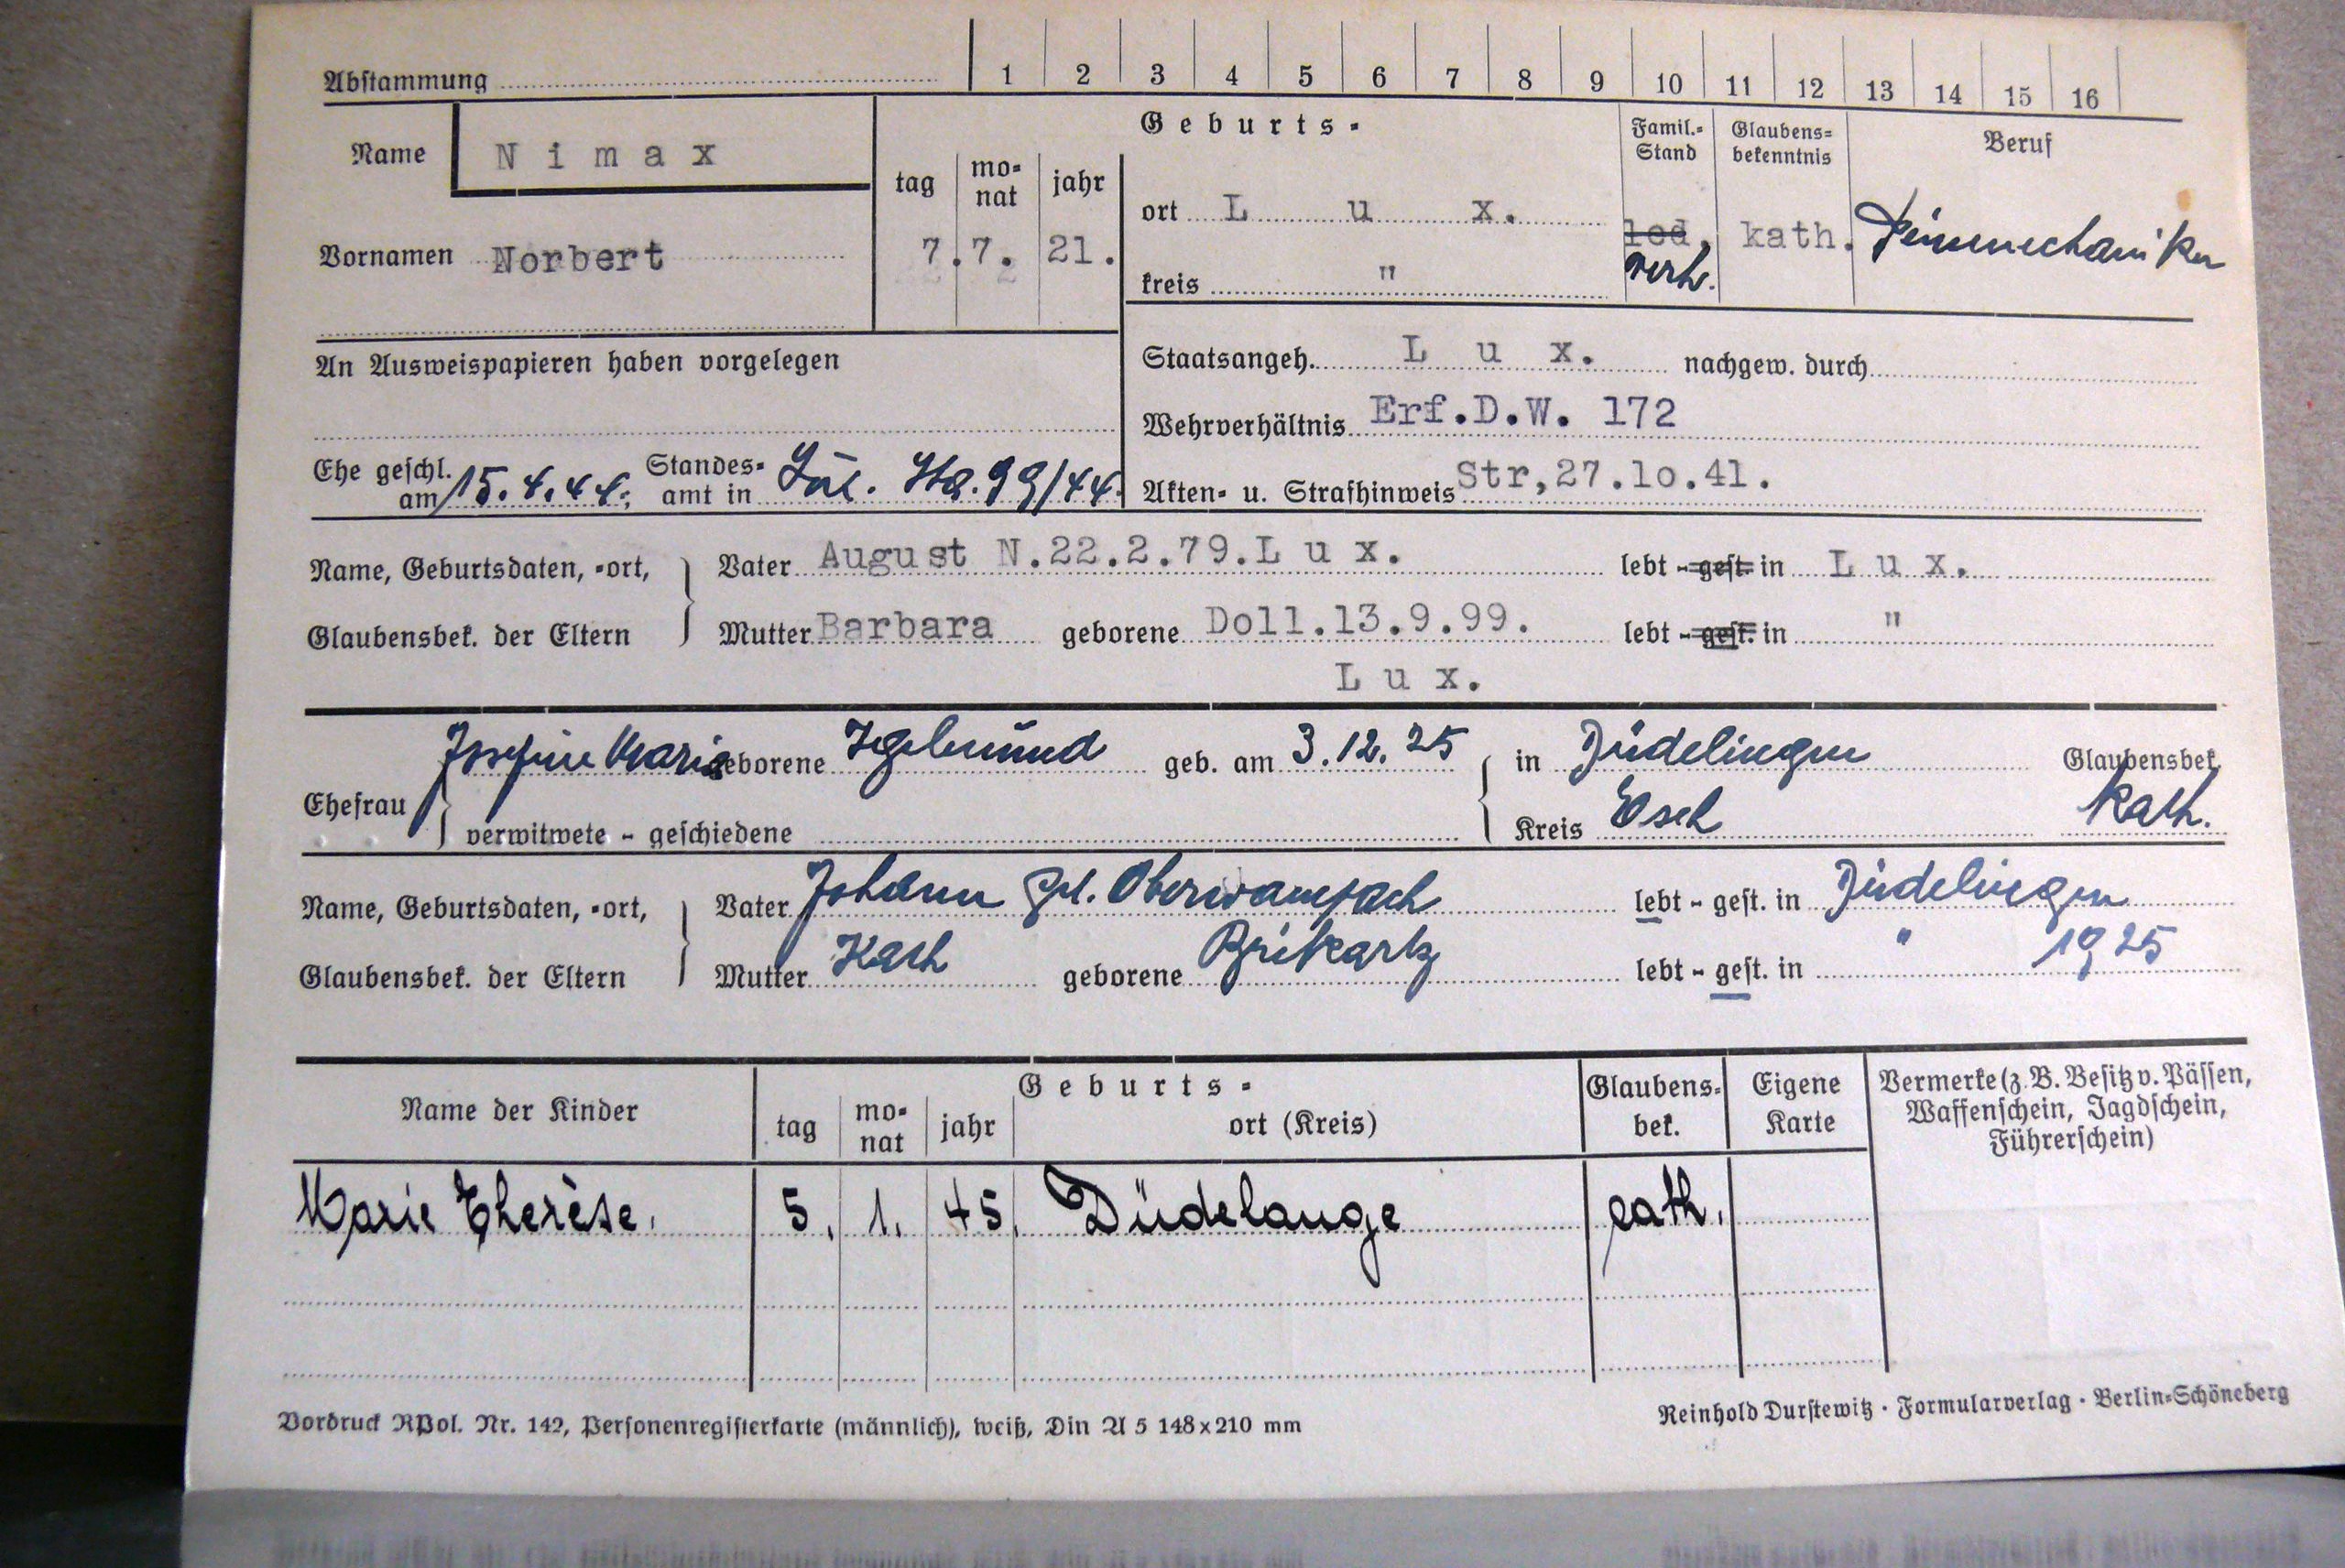 Abstammung 1 2 3 4 5 6 7 8 9 10 11 12 13 14 15 16
Name N i m a x
Vornamen Norbert
Geburts-
tag mo-nat jahr
7. 7. 21.
ort L u x.
kreis "
Famil.-Stand
led.
verh.
Glaubens-bekenntnis
kath.
Beruf
Feinmechaniker
An Ausweispapieren haben vorgelegen
Staatsangeh. L u x. nachgew. durch
Wehrverhältnis Erf.D.W. 172
Ehe geschl. am 15.4.44; Standes-amt in 99/44.
Akten- u. Strafhinweis Str,27.10.41.
Name, Geburtsdaten, -ort, Vater August N.22.2.79.L u x. lebt - gest. in L u x.
Glaubensbek. der Eltern Mutter Barbara geborene Doll.13.9.99. lebt - gest. in "
L u x.
Josefine Marie geborene geb. am 3.12.25 in Düdelingen Glaubensbek.
Ehefrau verwitwete - geschiedene Kreis Esch kath.
Name, Geburtsdaten, -ort, Vater Johann Oberwampach lebt - gest. in Düdelingen
Glaubensbek. der Eltern Mutter Kath geborene lebt - gest. in " 1925
Name der Kinder
Geburts-
tag mo-nat jahr ort (Kreis)
Glaubens-bek.
Eigene Karte
Vermerke (z. B. Besitz v. Pässen,
Waffenschein, Jagdschein,
Führerschein)
Marie Therèse. 5. 1. 45. Düdelange cath.
Vordruck RPol. Nr. 142, Personenregisterkarte (männlich), weiß, Din A 5 148x210 mm
Reinhold Durstewitz · Formularverlag · Berlin-Schöneberg